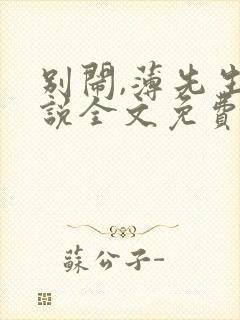 別鬧,薄先生
說全文免費
蘇公子-